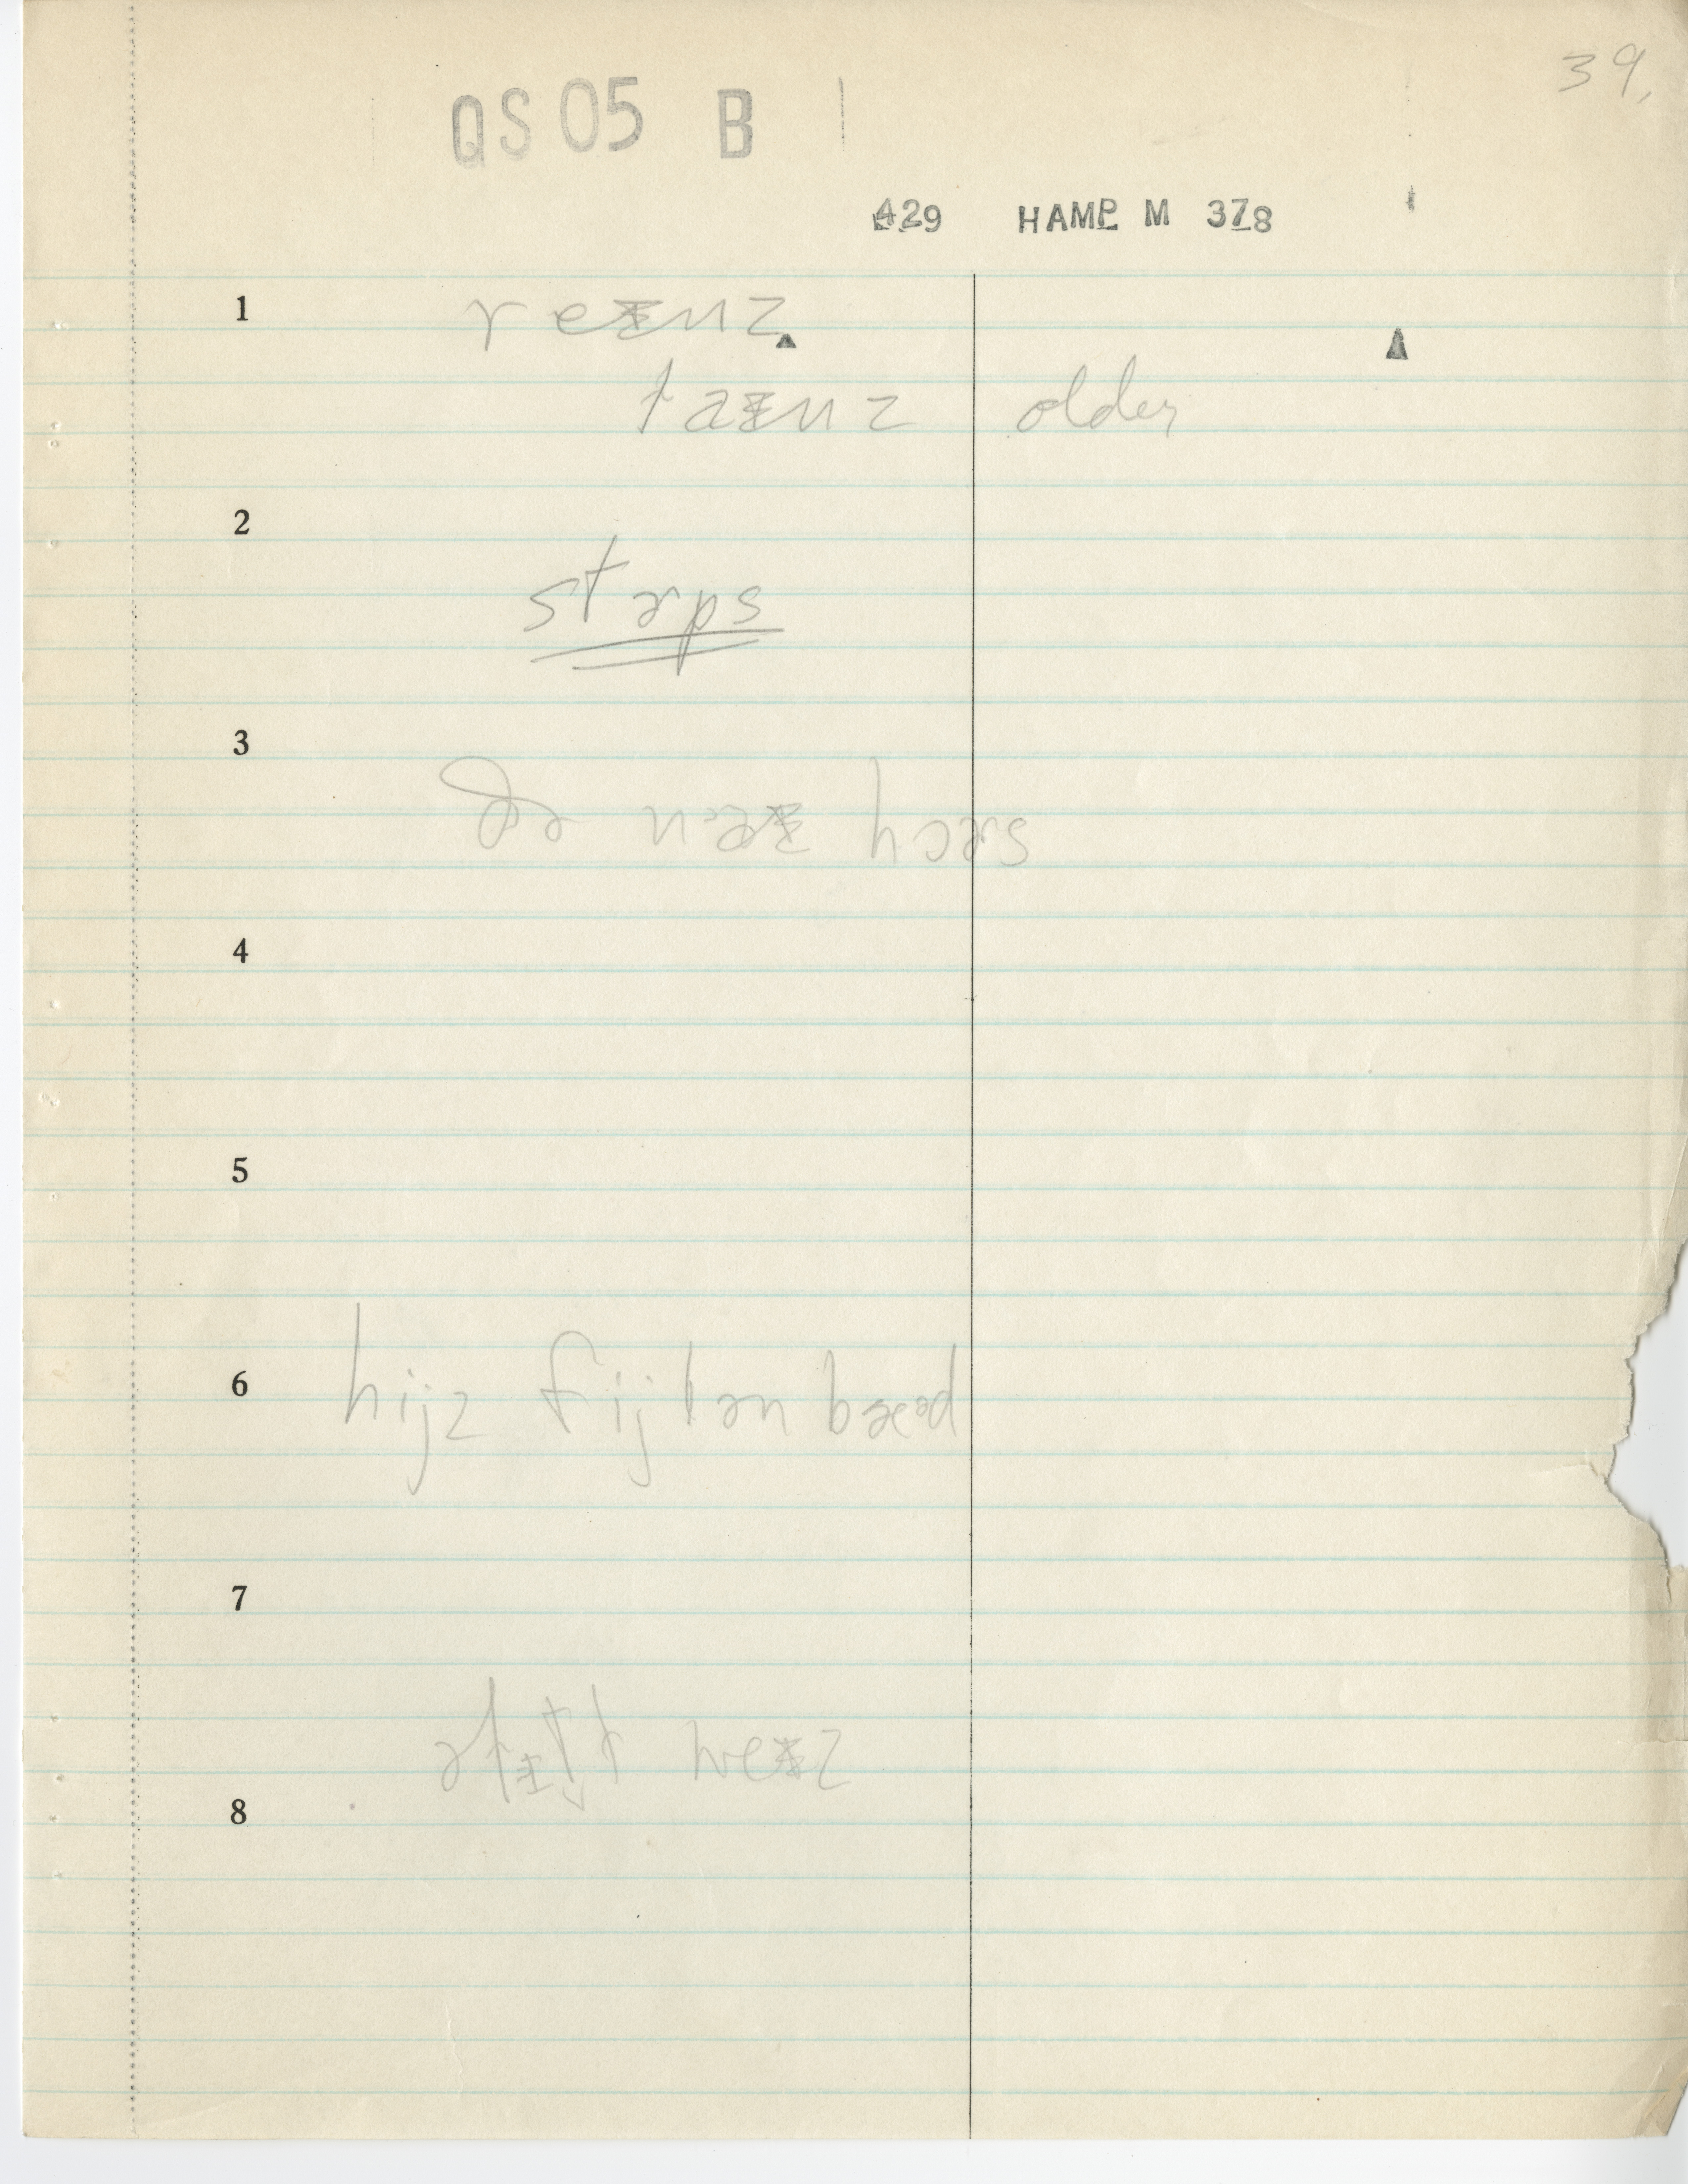 39.
QS05 B
429 HAMP M 378
1 reᵻnz
taᵻnz older
2
stɚps
3
4
5
6 hijz fijlən bæəd
7
8